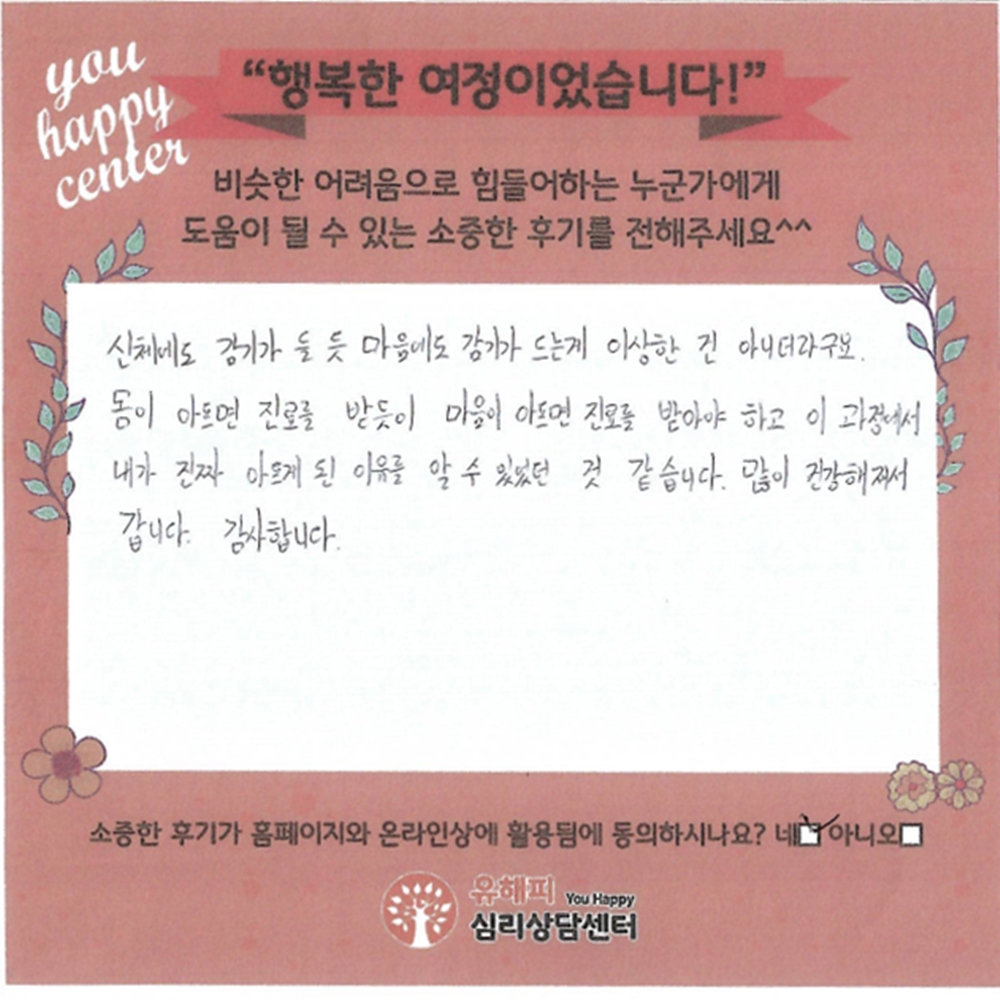 you
happy
center
“행복한 여정이었습니다!”
비슷한 어려움으로 힘들어하는 누군가에게
도움이 될 수 있는 소중한 후기를 전해주세요^^
신체에도 감기가 들 듯 마음에도 감기가 드는게 이상한 건 아니더라구요.
몸이 아프면 진료를 받듯이 마음이 아프면 진료를 받아야 하고 이 과정에서
내가 진짜 아프게 된 이유를 알 수 있었던 것 같습니다. 많이 건강해져서
갑니다. 감사합니다.
소중한 후기가 홈페이지와 온라인상에 활용됨에 동의하시나요? 네 아니오
유해피 You Happy
심리상담센터